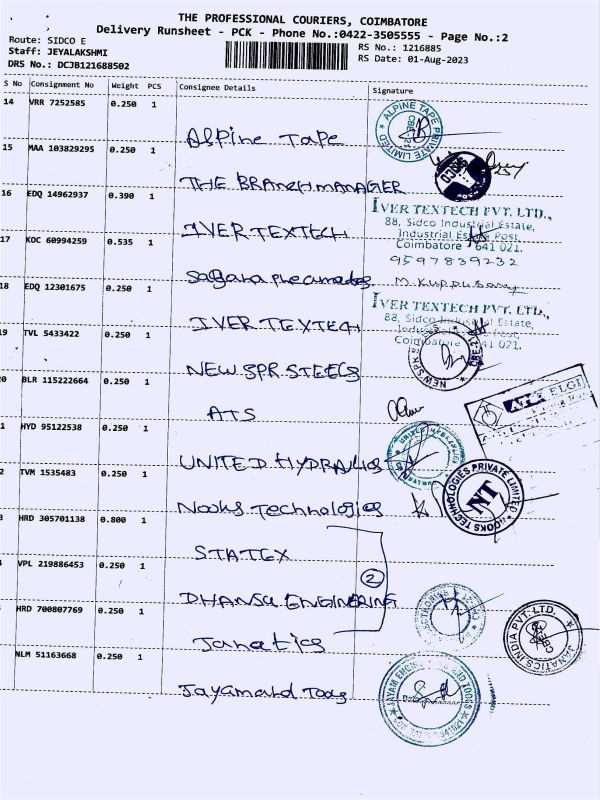 THE PROFESSIONAL COURIERS, COIMBATORE
Delivery Runsheet - PCK - Phone No.:0422-3505555 - Page No.:2
Route: SIDCO E
Staff: JEYALAKSHMI
DRS No.: DCJB121688502
RS No.: 1216885
RS Date: 01-Aug-2023
S No Consignment No Weight PCS Consignee Details Signature
14 VRR 7252585 0.250 1
Alpine Tape
ALPINE TAPE PRIVATE LIMITED
15 MAA 103829295 0.250 1
THE BRANCH MANAGER
16 EDQ 14962937 0.390 1
IVER TEXTECH
IVER TEXTECH PVT. LTD.,
88, Sidco Industrial Estate,
Industrial Estate Post,
Coimbatore 641 021.
9597839232
17 KOC 60994259 0.535 1
M. Kuppusamy
18 EDQ 12301675 0.250 1
IVER TEXTECH
IVER TEXTECH PVT. LTD.,
88, Sidco Industrial Estate,
Industrial Estate Post,
Coimbatore 641 021.
9 TVL 5433422 0.250 1
NEW SPR STEELS
0 BLR 115222664 0.250 1
ATS
ELGI
1 HYD 95122538 0.250 1
UNITED HYDRAULICS
2 TVM 1535483 0.250 1
Nooks Technologies
NOOKS TECHNOLOGIES PRIVATE LIMITED
NT
3 HRD 305701138 0.800 1
STATEX
4 VPL 219886453 0.250 1
2
DHANSU ENGINEERING
5 HRD 700807769 0.250 1
Janatics
JANATICS INDIA PVT. LTD.
CBE-21
NLM 51163668 0.250 1
Jayamard Tools